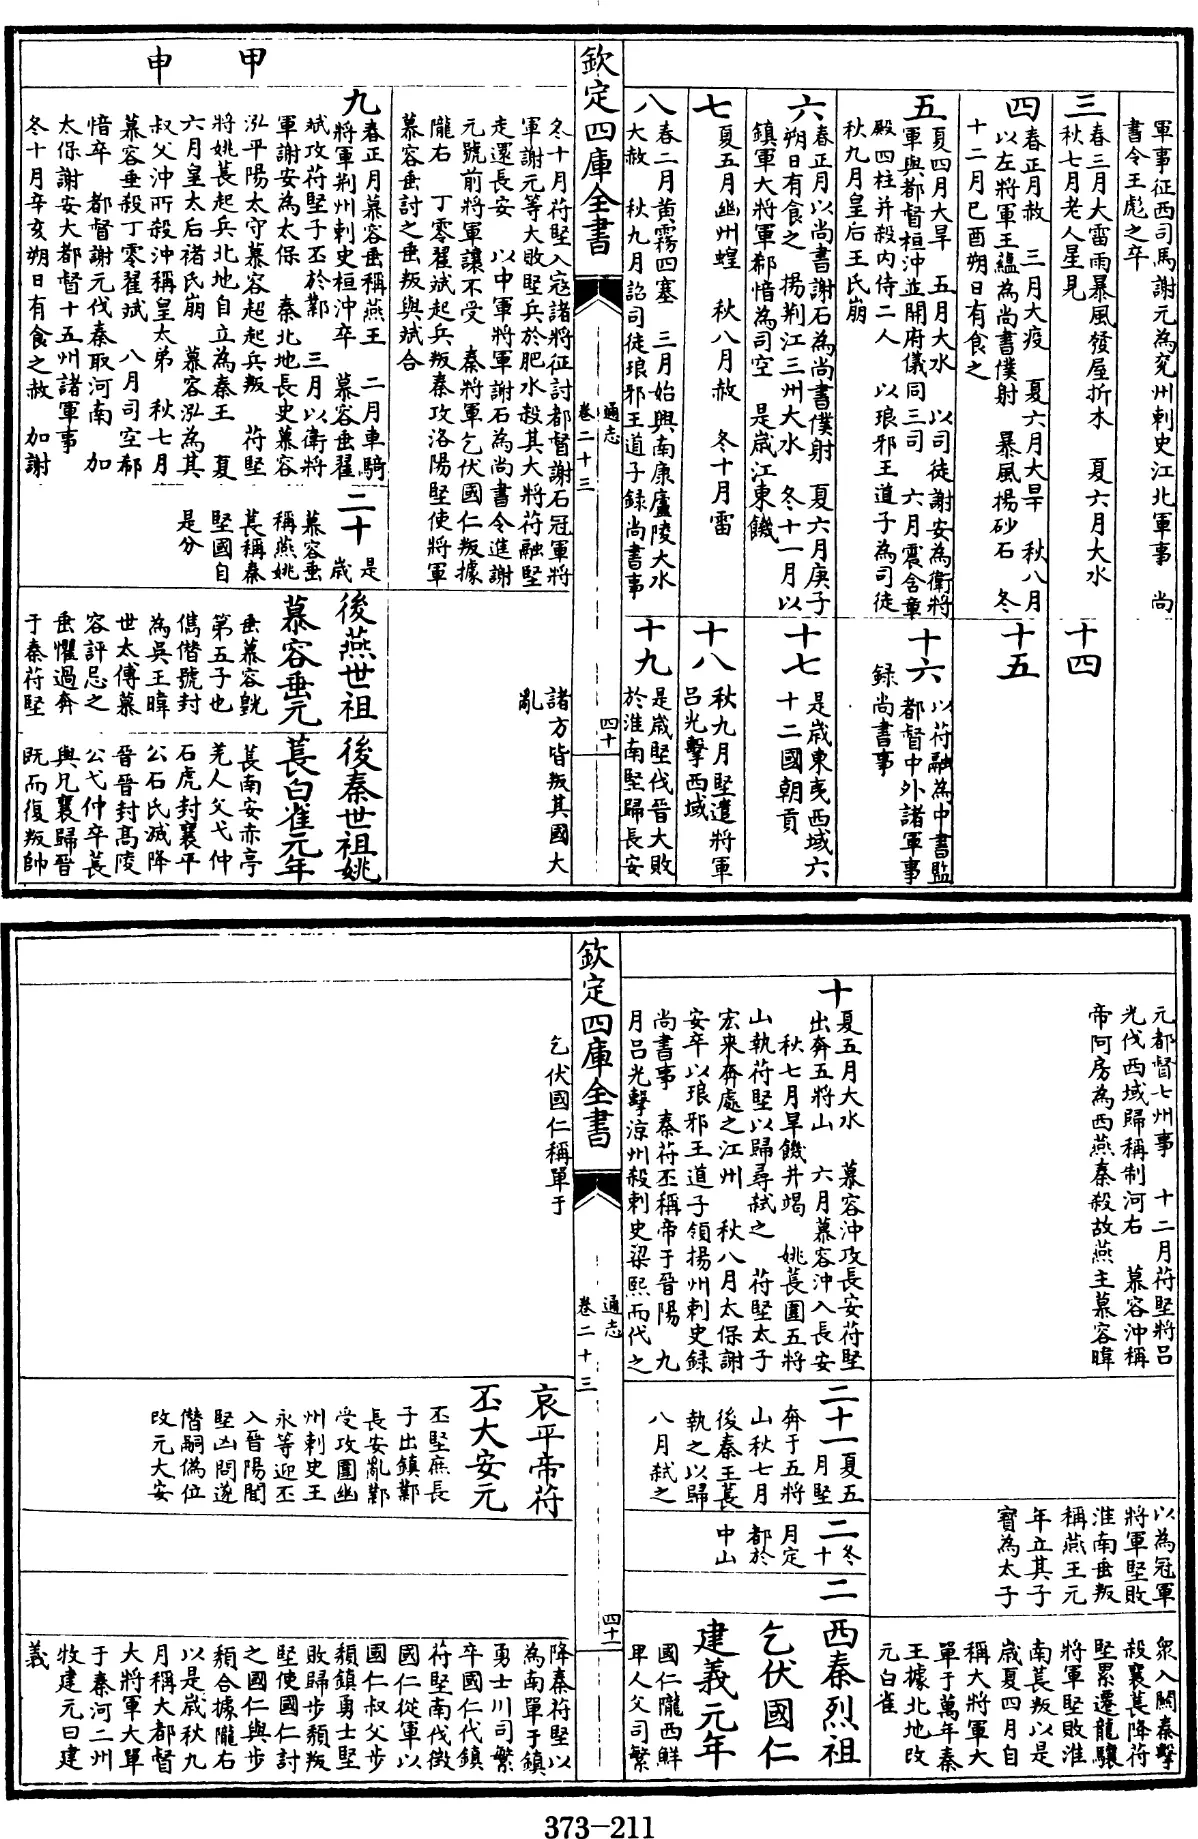 軍事征西司馬謝元為兖州刺史江北軍事 尚
書令王彪之卒
三
春三月大雷雨暴風發屋折木 夏六月大水
秋七月老人星見
十四
四
春正月赦 三月大疫 夏六月大旱 秋八月
以左將軍王蘊為尚書僕射 暴風揚砂石 冬
十二月己酉朔日有食之
十五
五
夏四月大旱 五月大水 以司徒謝安為衛將
軍與都督桓沖並開府儀同三司 六月震含章
殿四柱并殺内侍二人 以琅邪王道子為司徒
秋九月皇后王氏崩
十六
以苻融為中書監
都督中外諸軍事
録尚書事
六
春正月以尚書謝石為尚書僕射 夏六月庚子
朔日有食之 揚荆江三州大水 冬十一月以
鎮軍大將軍郗愔為司空 是歲江東饑
十七
是歲東夷西域六
十二國朝貢
七
夏五月幽州蝗 秋八月赦 冬十月雷
十八
秋九月堅遣將軍
呂光擊西域
八
春二月黄霧四塞 三月始興南康廬陵大水
大赦 秋九月詔司徒琅邪王道子録尚書事
十九
是歲堅伐晉大敗
於淮南堅歸長安
欽定四庫全書
通志
卷二十三
四十
冬十月苻堅入寇諸將征討都督謝石冠軍將
軍謝元等大敗堅兵於肥水殺其大將苻融堅
走還長安 以中軍將軍謝石為尚書令進謝
元號前將軍讓不受 秦將軍乞伏國仁叛據
隴右 丁零翟斌起兵叛秦攻洛陽堅使將軍
慕容垂討之垂叛與斌合
諸方皆叛其國大
亂
甲
申
九
春正月慕容垂稱燕王 二月車騎
將軍荆州刺史桓沖卒 慕容垂翟
斌攻苻堅子丕於鄴 三月以衛將
軍謝安為太保 秦北地長史慕容
泓平陽太守慕容超起兵叛 苻堅
將姚萇起兵北地自立為秦王 夏
六月皇太后禇氏崩 慕容泓為其
叔父沖所殺沖稱皇太弟 秋七月
慕容垂殺丁零翟斌 八月司空郗
愔卒 都督謝元伐秦取河南 加
太保謝安大都督十五州諸軍事
冬十月辛亥朔日有食之赦 加謝
二十
是
歲
慕容垂
稱燕姚
萇稱秦
堅國自
是分
後燕世祖
慕容垂元
垂慕容皝
第五子也
儁僭號封
為吳王暐
世太傅慕
容評忌之
垂懼過奔
于秦苻堅
後秦世祖姚
萇白雀元年
萇南安赤亭
羌人父弋仲
石虎封襄平
公石氏滅降
晉晉封高陵
公弋仲卒萇
與兄襄歸晉
既而復叛帥
元都督七州事 十二月苻堅將呂
光伐西域歸稱制河右 慕容沖稱
帝阿房為西燕秦殺故燕主慕容暐
以為冠軍
將軍堅敗
淮南垂叛
稱燕王元
年立其子
寳為太子
衆入關秦擊
殺襄萇降苻
堅累遷龍驤
將軍堅敗淮
南萇叛以是
歲夏四月自
稱大將軍大
單于萬年秦
王據北地改
元白雀
十
夏五月大水 慕容沖攻長安苻堅
出奔五將山 六月慕容沖入長安
秋七月旱饑井竭 姚萇圍五將
山執苻堅以歸尋弒之 苻堅太子
宏來奔處之江州 秋八月太保謝
安卒以琅邪王道子領揚州刺史録
尚書事 秦苻丕稱帝于晉陽 九
月呂光擊涼州殺刺史梁熙而代之
二十一
夏五
月堅
奔于五將
山秋七月
後秦王萇
執之以歸
八月弒之
二
冬十
月定
都於
中山
二
西秦烈祖
乞伏國仁
建義元年
國仁隴西鮮
卑人父司繁
欽定四庫全書
通志
卷二十三
四十一
乞伏國仁稱單于
哀平帝苻
丕大安元
丕堅庶長
子出鎮鄴
長安亂鄴
受攻圍幽
州刺史王
永等迎丕
入晉陽聞
堅凶問遂
僭嗣偽位
改元大安
降秦苻堅以
為南單于鎮
勇士川司繁
卒國仁代鎮
苻堅南伐徵
國仁從軍以
國仁叔父步
頹鎮勇士堅
敗歸步頹叛
堅使國仁討
之國仁與步
頹合據隴右
以是歲秋九
月稱大都督
大將軍大單
于秦河二州
牧建元曰建
義
373-211